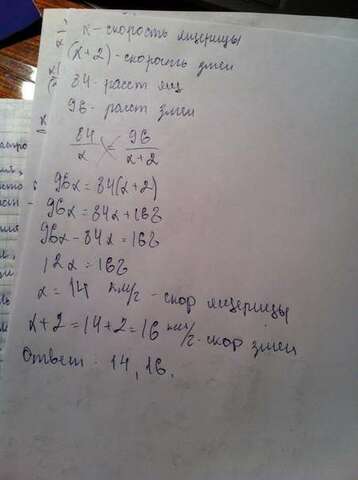 x - скорость ящерицы
(x+2) - скорость змеи
84 - расст ящ
96 - расст змеи
84/x = 96/x+2
96x = 84(x+2)
96x = 84x + 168
96x - 84x = 168
12x = 168
x = 14 км/г - скор ящерицы
x + 2 = 14 + 2 = 16 км/г - скор змеи
Ответ: 14, 16.